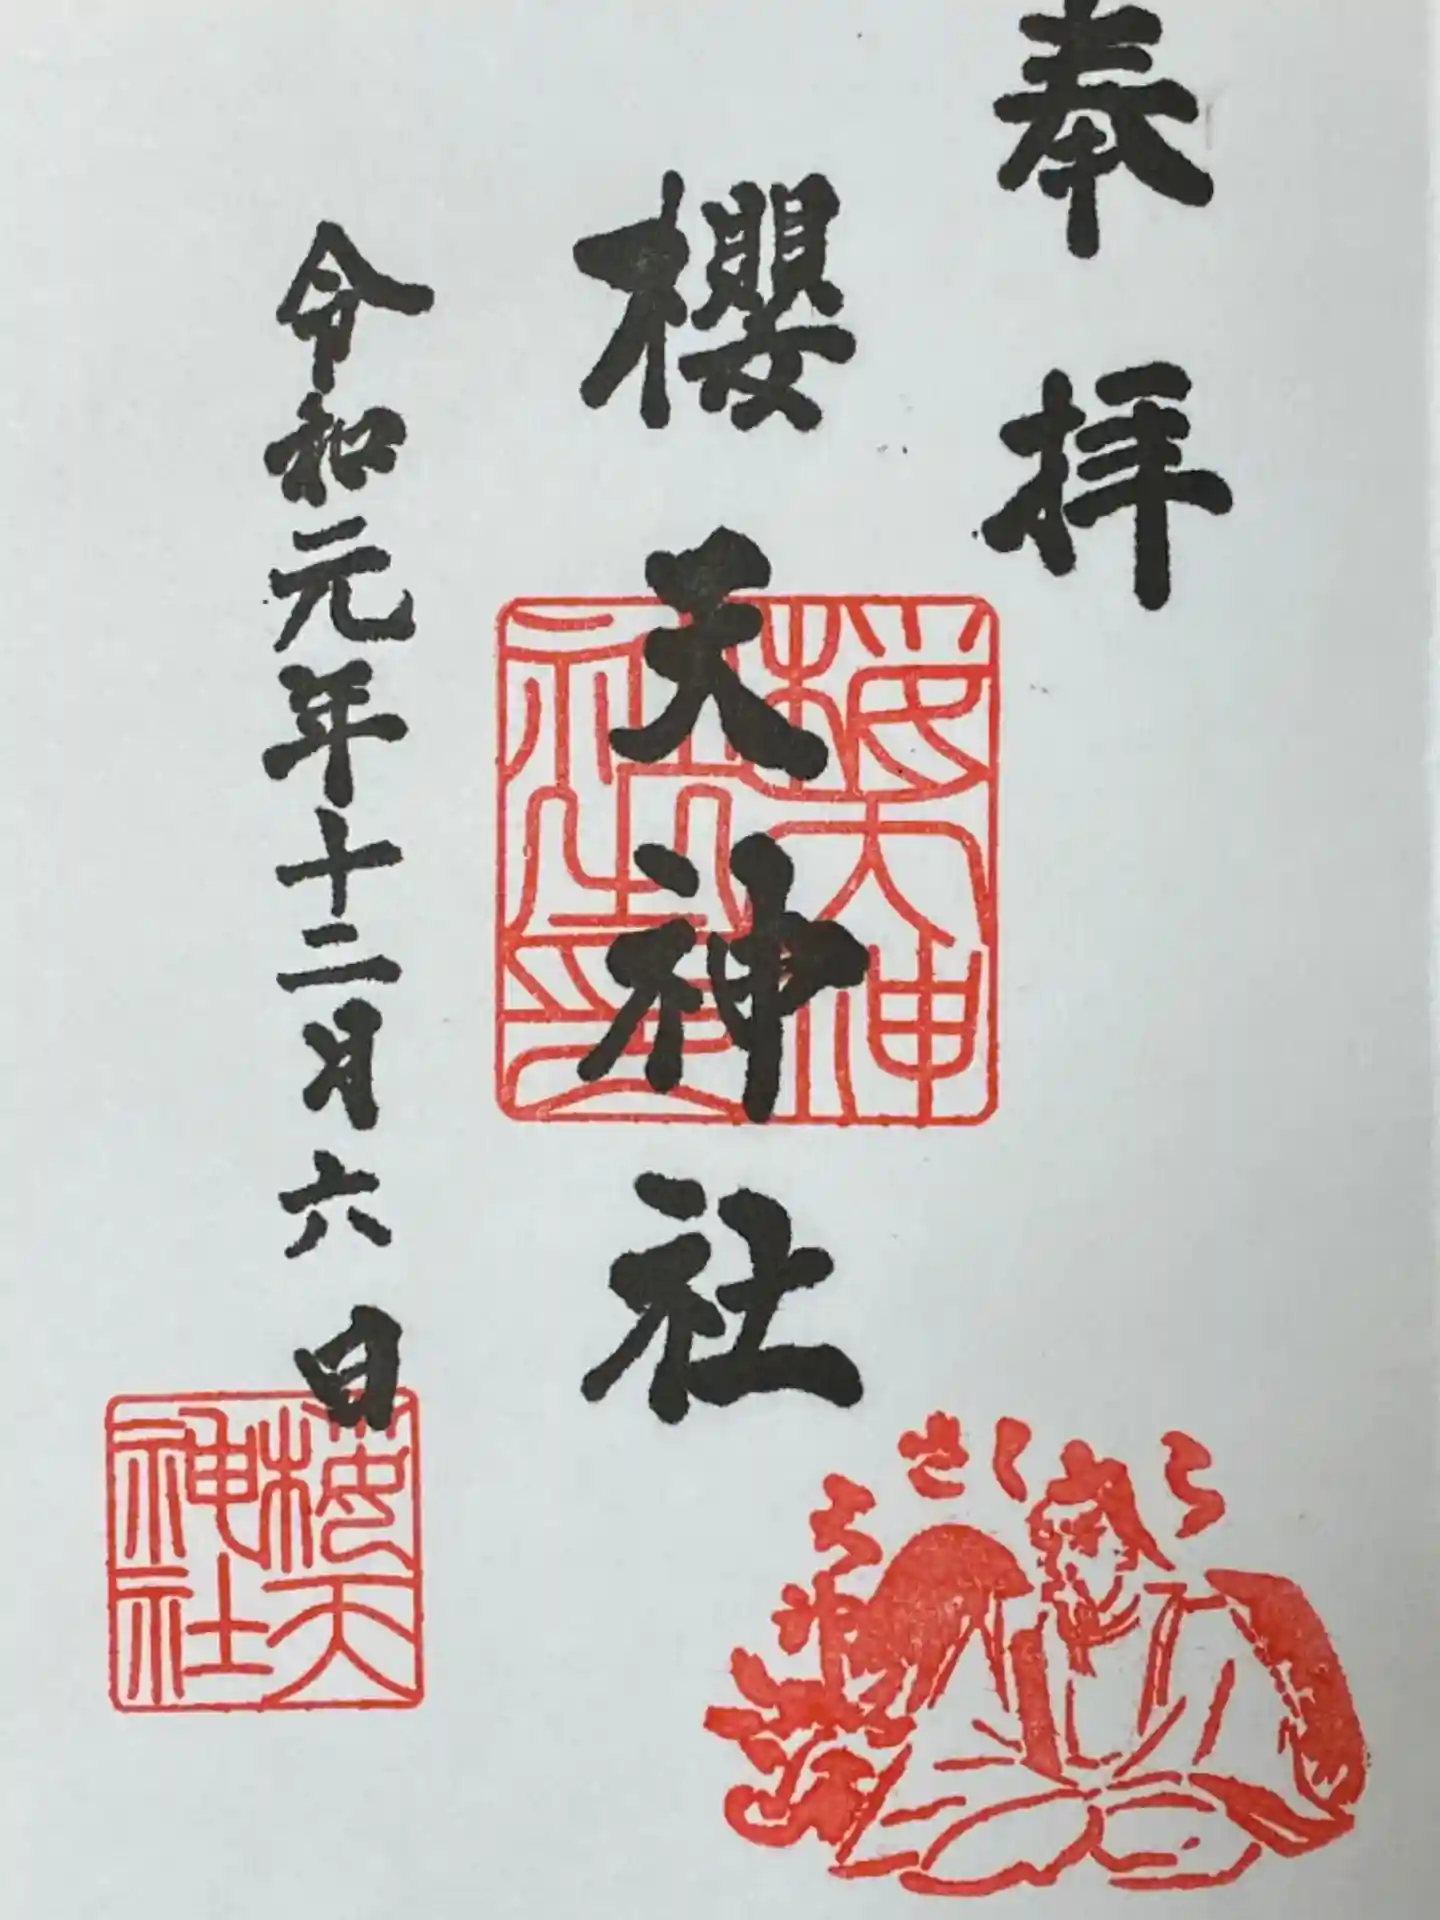 奉拝
櫻天神社
櫻天神
社之印
令和元年十二月六日
櫻天
神社
さくら